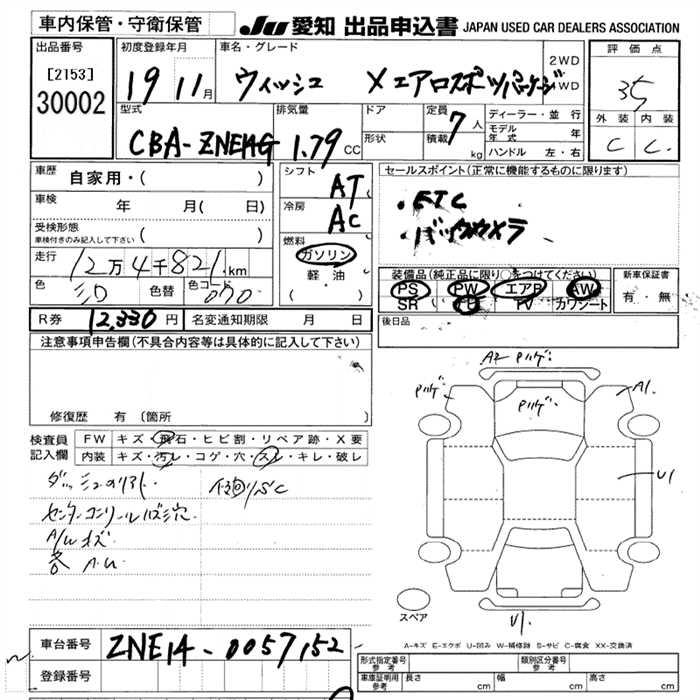 車内保管・守衛保管 JU 愛知 出品申込書 JAPAN USED CAR DEALERS ASSOCIATION
出品番号 初度登録年月 車名・グレード 評価点
[2153] 2WD
30002 19 11月 ウィッシュ Xエアロスポツパッケージ 4WD 35
外装 内装
型式 排気量 ドア 定員 7人 ディーラー・並行 C C
CBA-ZNE14G 1.79CC 形状 積載 kg モデル年式 年
ハンドル 左・右
車歴 自家用・( ) シフト AT セールスポイント(正常に機能するものに限ります)
車検 年 月( 日) 冷房 AC ・ETC
受検形態 ・バックカメラ
車検付きのみ記入して下さい ( ) 燃料
走行 12万4千821km ガソリン 装備品(純正品に限り○をつけてください) 新車保証書
色 色替 色コード 070 軽油 PS PW エアB AW 有・無
( ) SR TV カワシート
R券 12,330円 名変通知期限 月 日 後日品
注意事項申告欄(不具合内容等は具体的に記入して下さい)
A2 Pハゲ
Pハゲ Pハゲ A1
修復歴 有(箇所 )
検査員記入欄 FW キズ・飛石・ヒビ割・リペア跡・X要
内装 キズ・汚レ・コゲ・穴・スレ・キレ・破レ
U1
A/Wキズ
各 A.U
スペア U1
A-キズ E-エクボ U-凹み W-補修跡 S-サビ C-腐食 XX-交換済
車台番号 ZNE14-0057152
登録番号
形式指定番号 参考 類別区分番号 参考
車庫証明用 参考 長さ cm 幅 cm 高さ cm